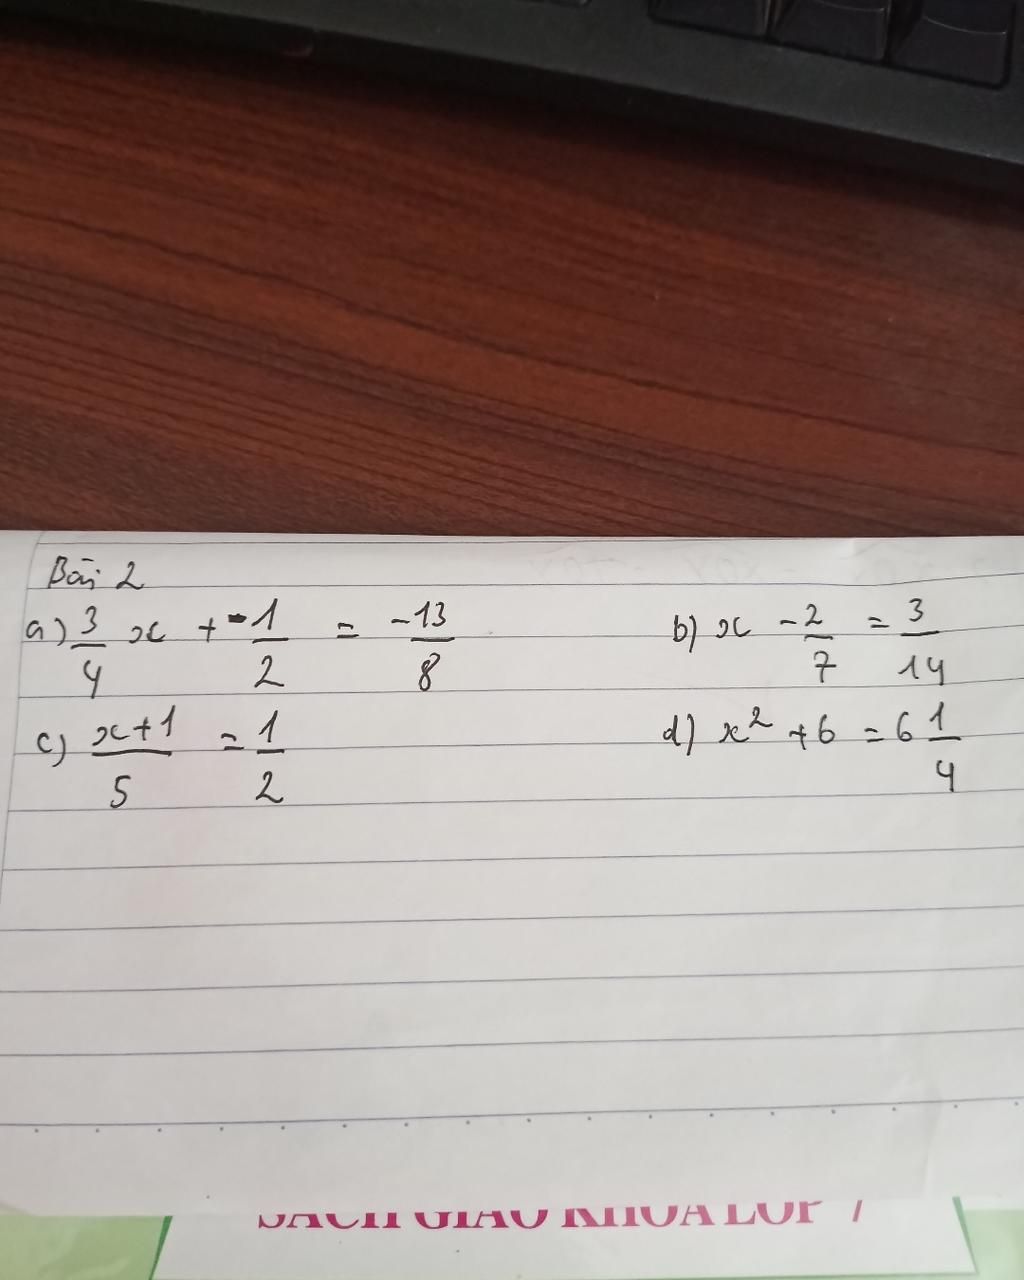 Bài 2
a) 3/4 x + -1/2 = -13/8 b) x - 2/7 = 3/14
c) x+1/5 = 1/2 d) x² + 6 = 6 1/4
SÁCH GIÁO KHOA LỚP 7